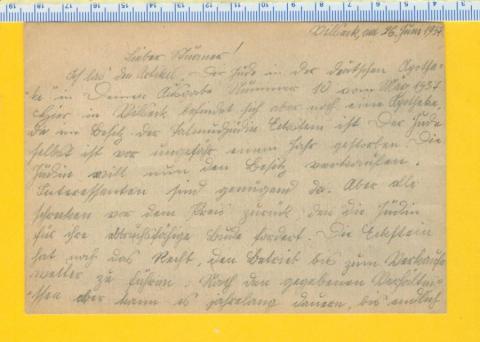 Vilseck, am 26. Juni 1937
Lieber Stürmer!
Ich las den Artikel „Der Jude in der deutschen Apothe-
ke" in Deiner Ausgabe Nummer 10 vom März 1937
Hier in Vilseck befindet sich aber noch eine Apotheke,
die im Besitz der Talmudjüdin Eckstein ist. Der Jude
selbst ist vor ungefähr einem Jahr gestorben. Die
Jüdin will nun den Besitz verkaufen.
Interessenten sind genügend da. Aber alle
schrecken vor dem Preis zurück, den die Jüdin
für ihre abbruchfähige Bude fordert. Die Eckstein
hat noch das Recht, den Betrieb bis zum Verkauf
weiter zu führen. Nach den gegebenen Verhältni-
ssen aber kann es jahrelang dauern, bis endlich